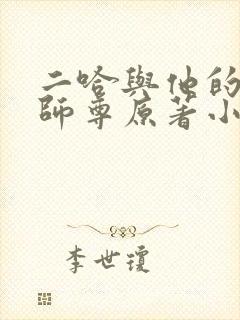 二哈與他的
師尊原著小
李世瓊